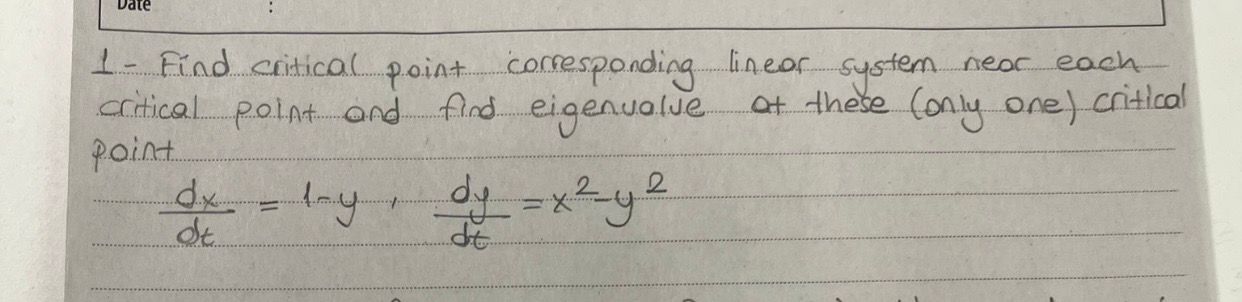 Date :
1- Find critical point corresponding linear system near each
critical point and find eigenvalue at these (only one) critical
point
dx/dt = 1-y , dy/dt = x²-y²